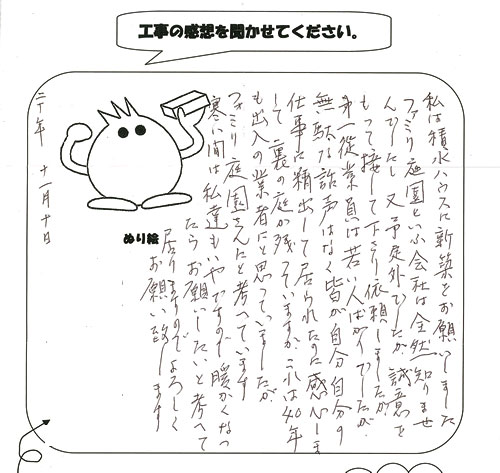 工事の感想を聞かせてください。
私は積水ハウスに新築をお願いしました
ファミリー庭園といふ会社は全然知りませ
んでしたし又予定外でしたが誠意を
もって接して下さり依頼しましたが
第一従業員は若い人ばかりでしたが
無駄な話声はなく皆が自分自分の
仕事に精出して居られたのに感心しま
して裏の庭が残っていますがこれは40年
も出入の業者にと思っていましたが
ファミリー庭園さんにと考へています
寒い間は私達もいやですので暖かくなっ
たらお願いしたいと考へて
居りますのでよろしく
お願い致します
二十年 十一月十日
ぬり絵